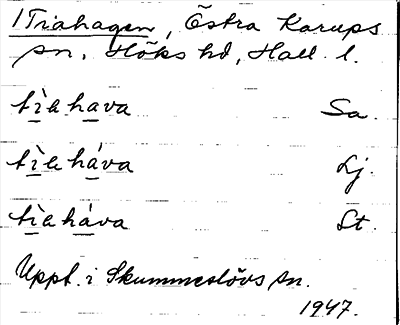 1 Triahagen, Östra Karups
sn, Höks hd, Hall. l.
tìahava Sa.
tìlaháva Lj.
tìaháva St.
Uppt. i Skummeslövs sn.
1947.